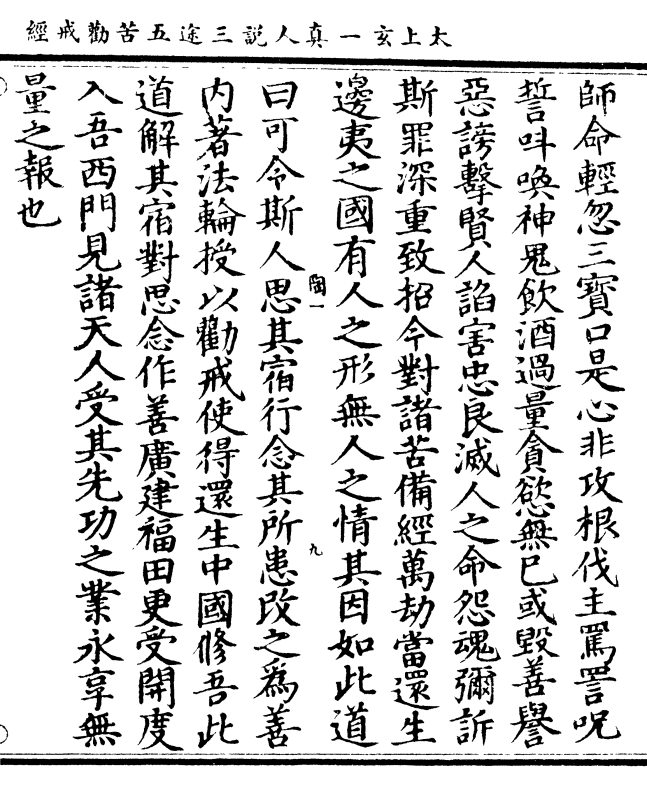 太上玄一真人説三途五苦勸戒經
師命輕忽三寳口是心非攻根伐主罵詈呪
誓呌喚神鬼飲酒過量貪慾無已或毀善譽
惡謗擊賢人諂害忠良滅人之命怨魂彌訴
斯罪深重致招今對諸苦備經萬劫當還生
邊夷之國有人之形無人之情其因如此道
陶一
九
曰可令斯人思其宿行念其所患改之爲善
内著法輪授以勸戒使得還生中國修吾此
道解其宿對思念作善廣建福田更受開度
入吾西門見諸天人受其先功之業永享無
量之報也